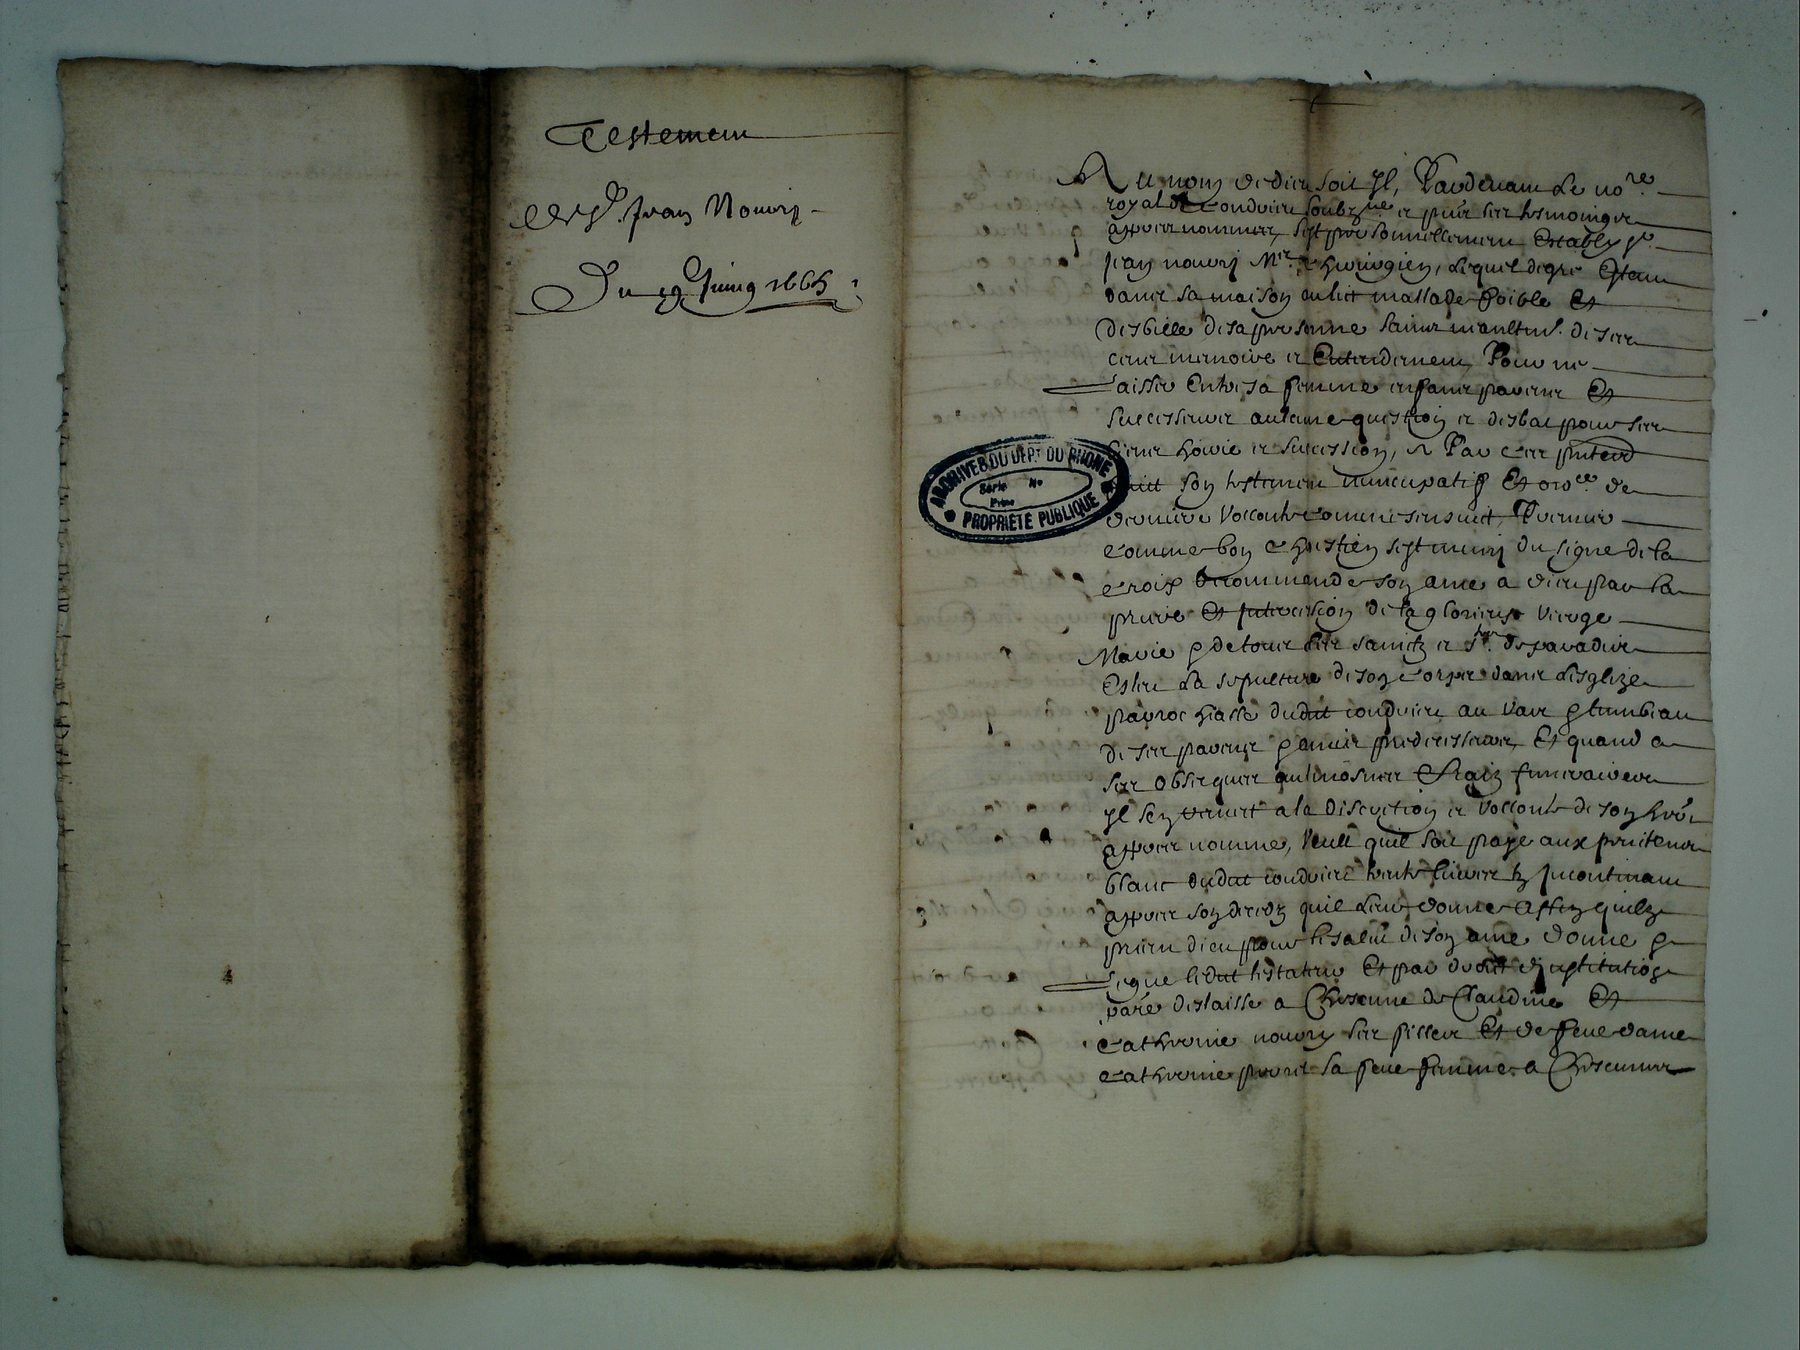 Testement
de Sr. Jean Nourry
Du 19 Juing 1665
ARCHIVES DU DÉPT DU RHONE
Série No
PROPRIÉTÉ PUBLIQUE
Au nom de dieu soit Il, Pardevant Le nore
royal de Condrieu soubzne et pnts les tesmoingz
appres nommez, sest personnellement Estably sr
Jean nourry Mre chirurgien, Lequel de gre Estant
dans sa maison au lict mallade foible Et
desbille de sa personne sain moultesf. de ses
cens memoire et Entendement, Pour ne
Laisser Entre sa femme enfans parens Et
successeurs aulcune question et desbat pour ses
biens hoirie et succession, a Par ces
faict son testement nuncupatif Et orde de
derniere vollonte comme sensuict, Premier
comme bon chrestien sest muny du signe de la
croix recommande son ame a dieu par la
priere Et Intercession de la glorieuse vierge
Marie & de tous les sainctz et stes de paradis
Eslire La sepulture de son corps dans Lesglize
parrochialle dudict condrieu au vas & tumbeau
de ses parens & amis predecesseurs, Et quand a
ses obseques aulmosnes & fraiz funeraires
Il sen remet a la discretion et vollonte de son her
appres nomme, Veult quil soit paye aux penitens
blanc dudict condrieu trente livres tz Incontinant
appres son deces quil Leur donne Affin quilz
prient dieu pour le salut de son ame, donne &
Legue ledict testateur Et par droict dinstitution
pare deslaisse a Chescune de Claudine Et
catherine nourry ses filles Et de feue dame
catherine sa feue femme a Chescune